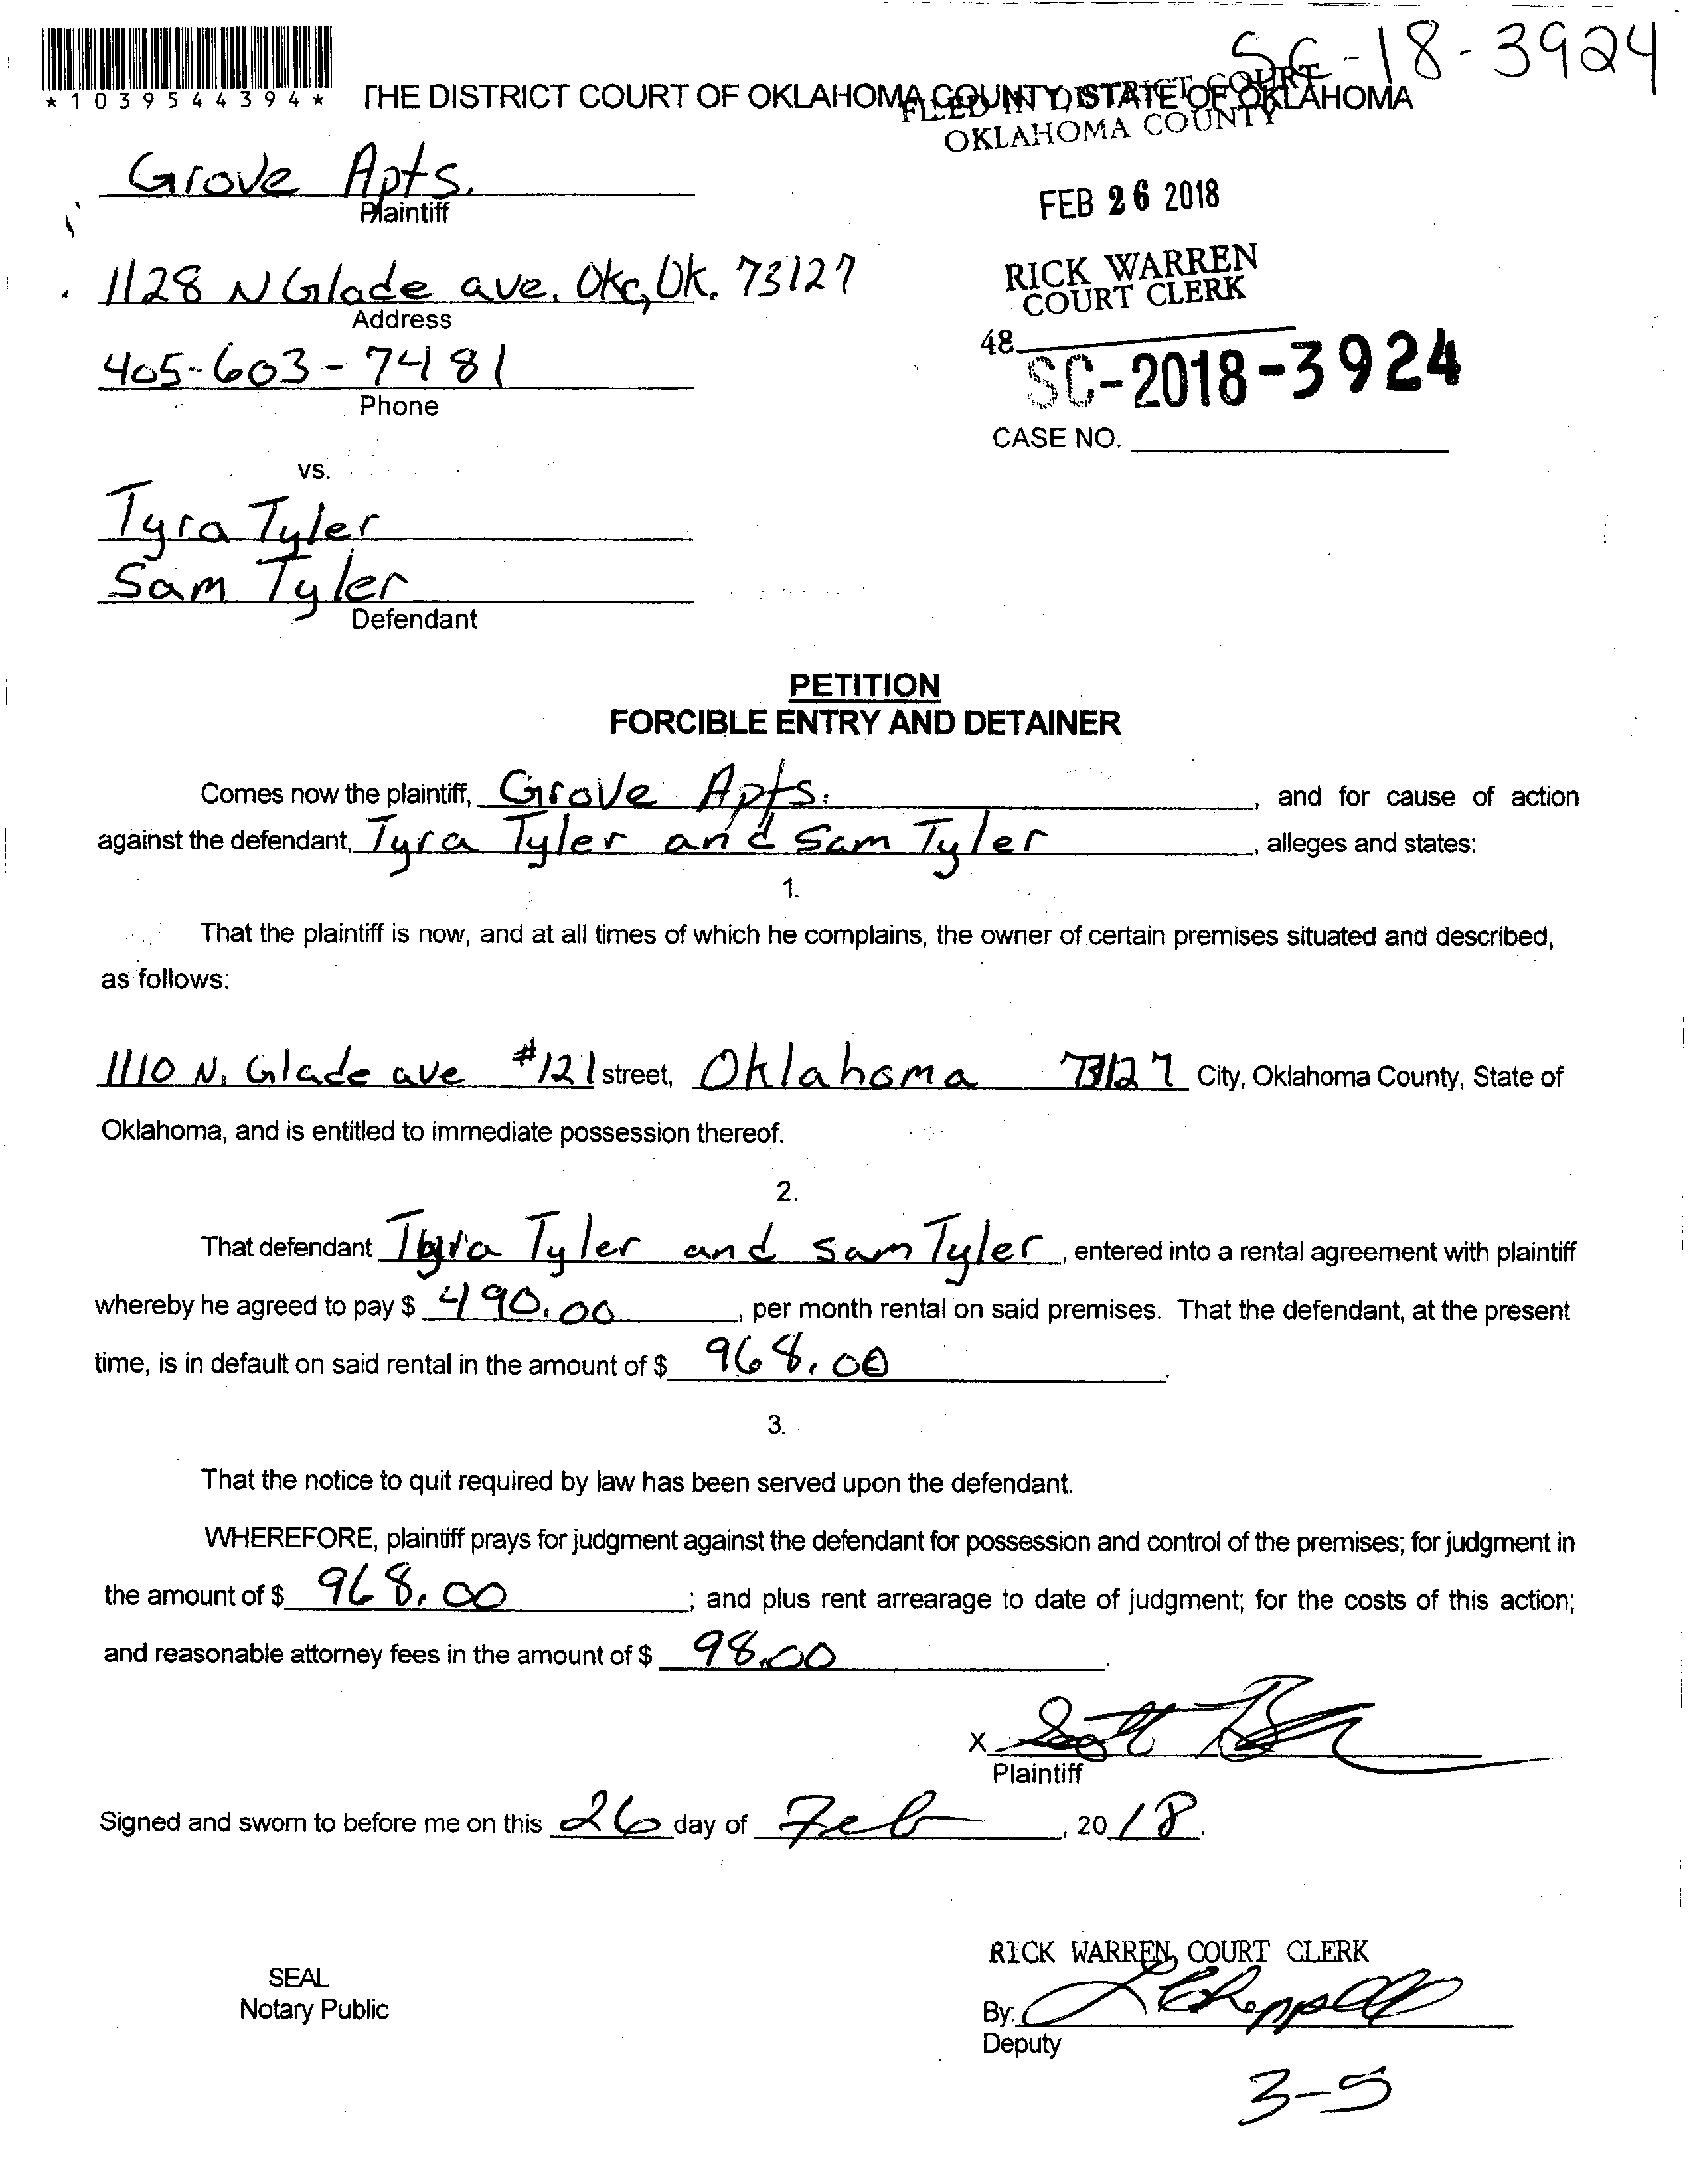 SC-18-3924
*1039544394*
THE DISTRICT COURT OF OKLAHOMA COUNTY, STATE OF OKLAHOMA
FILED IN DISTRICT COURT
OKLAHOMA COUNTY
Grove Apts.
Plaintiff
FEB 26 2018
1128 N Glade ave. Okc, Ok. 73127
Address
RICK WARREN
COURT CLERK
405-603-7481
Phone
48
SC-2018-3924
CASE NO.
vs.
Tyra Tyler
Sam Tyler
Defendant
PETITION
FORCIBLE ENTRY AND DETAINER
Comes now the plaintiff, Grove Apts. , and for cause of action
against the defendant, Tyra Tyler and Sam Tyler , alleges and states:
1.
That the plaintiff is now, and at all times of which he complains, the owner of certain premises situated and described,
as follows:
1110 N. Glade ave #121 street, Oklahoma 73127 City, Oklahoma County, State of
Oklahoma, and is entitled to immediate possession thereof.
2.
That defendant Tyra Tyler and Sam Tyler , entered into a rental agreement with plaintiff
whereby he agreed to pay $ 490.00 , per month rental on said premises. That the defendant, at the present
time, is in default on said rental in the amount of $ 968.00 .
3.
That the notice to quit required by law has been served upon the defendant.
WHEREFORE, plaintiff prays for judgment against the defendant for possession and control of the premises; for judgment in
the amount of $ 968.00 ; and plus rent arrearage to date of judgment; for the costs of this action;
and reasonable attorney fees in the amount of $ 98.00 .
X
Plaintiff
Signed and sworn to before me on this 26 day of Feb , 20 18 .
RICK WARREN, COURT CLERK
SEAL
Notary Public
By:
Deputy
3-5